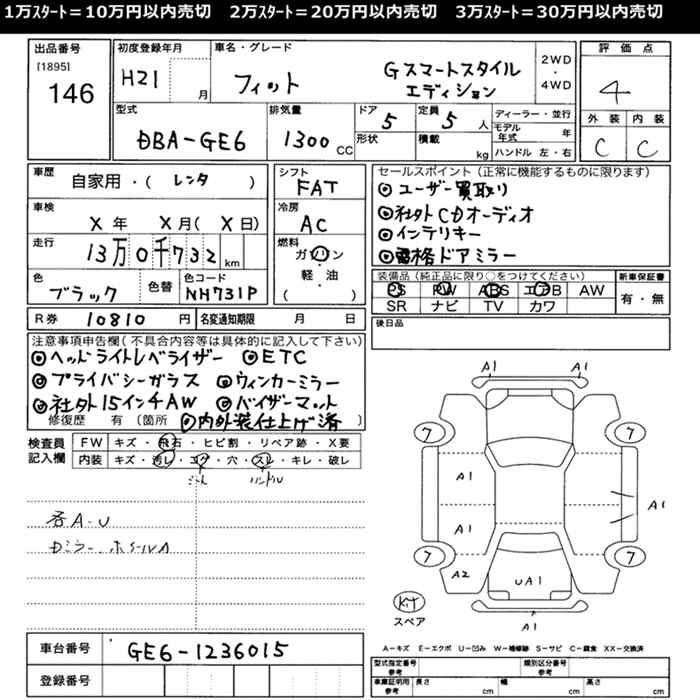 1万ｽﾀｰﾄ＝10万円以内売切　2万ｽﾀｰﾄ＝20万円以内売切　3万ｽﾀｰﾄ＝30万円以内売切
出品番号
[1895]
146
初度登録年月
H21
月
車名・グレード
フィット
Gスマートスタイル
エディション
2WD
・
4WD
評価点
4
外装 内装
C C
型式
DBA-GE6
排気量
1300 CC
ドア
5
形状
定員
5 人
積載
kg
ディーラー・並行
モデル年式 年
ハンドル 左・右
車歴
自家用・( レンタ )
車検
X 年 X 月( X 日)
走行
13万0千732 km
色
ブラック
色替
色コード
NH731P
シフト
FAT
冷房
AC
燃料
ガソリン
軽・油
( )
セールスポイント（正常に機能するものに限ります）
◎ユーザー買取り
◎社外CDオーディオ
◎インテリキー
◎電格ドアミラー
装備品（純正品に限り○をつけてください）
PS PW ABS エアB AW
SR ナビ TV カワ
新車保証書
有・無
R券 10810 円
名変通知期限 月 日
後日品
注意事項申告欄（不具合内容等は具体的に記入して下さい）
◎ヘッドライトレベライザー ◎ETC
◎プライバシーガラス ◎ウィンカーミラー
◎社外15インチAW ◎バイザーマット
修復歴 有（箇所 ◎内外装仕上げ済
検査員記入欄
FW キズ・飛石・ヒビ割・リペア跡・X要
内装 キズ・汚レ・コゲ・穴・スレ・キレ・破レ
シート ハンドル
各A-U
Dミラー ホイールA
A1 A1
7 7
A1
A1
A1
7 7
A2
UA1
A1
Kit
スペア
A－キズ E－エクボ U－凹み W－補修跡 S－サビ C－腐食 XX－交換済
車台番号 GE6-1236015
登録番号
型式指定番号 参考
類別区分番号 参考
車庫証明用 参考
長さ cm
幅 cm
高さ cm